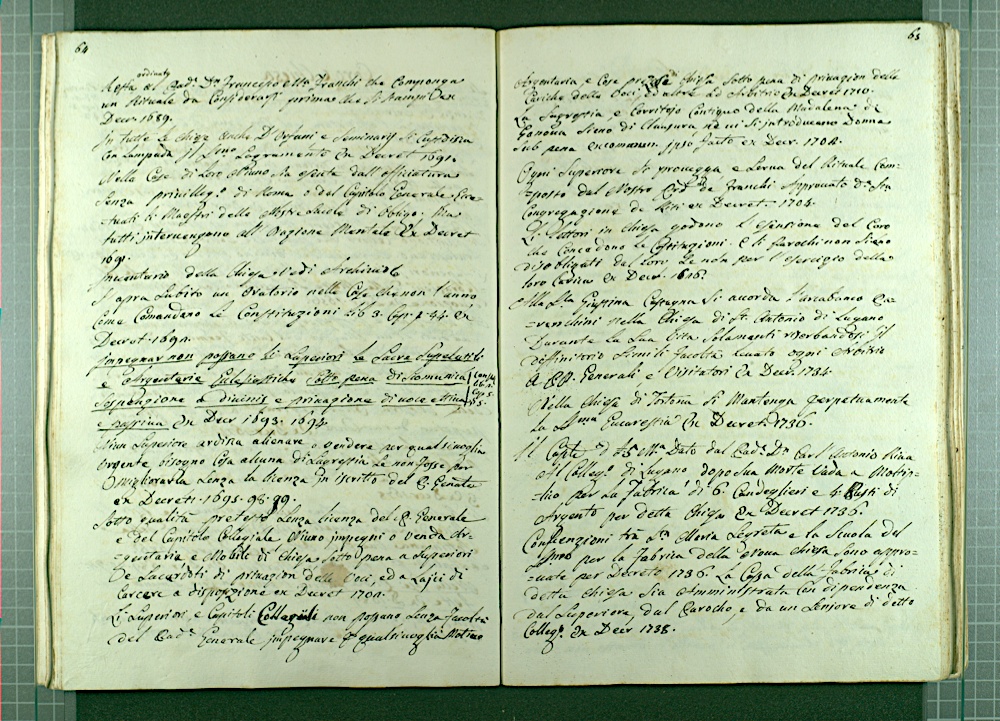 64
ordinato
Resta al Pad.e D.n Francesco M.a Franchi che Componga
un Rituale da Considerarsi prima che si stampi Ex
Decr. 1689.
In tutte le Chiese anche d'Orfani e Seminarij si Custodisca
Con Lampada il S.mo Sagramento Ex Decret 1691.
Nelle Case di Loro Niuno sia esente dall'officiatura
senza privilleg.o di Roma o del Capitolo Generale
tuati li Maestri delle di obligo; ma
tutti intervengono all'Oragione Mentale Ex Decret
1691.
Inventario della Chiesa Archivio
S'apra subito un Oratorio nelle Case che non l'anno
Come Comandano le Constituzioni Lib. 3. Cap. 44. Ex
Decret. 1691.
Impegnar non possano li Superiori le Sacre Supelletili
e Argentarie Eclesiastiche sotto pena di Scomunica
Sospenzione a divinis e privazione di voce attiva
e passiva Ex Decr 1693. 1694.
Niun Superiore ardisca alienare o vendere per qualsivoglia
Urgente bisogno Cosa alcuna di Sagrestia se non fosse per
Migliorarla senza la licenza in iscritto del P. Genale
ex Decreti 1695. 98. 99.
Sotto qualsia pretesto senza licenza del P. Generale
e del Capitolo Collegiale Niuno impegni o Venda Ar-
-gentaria e Mobili di Chiesa sotto pena a Superiori
De Sacerdoti di privazion delle Voci, ed a Laici di
Carcere a disposizione ex Decret 1701.
Li Superiori e Capitoli Collegiali non possano senza facoltà
del Pad.e Generale impegnare p. qualsivoglia Motivo
65
Argentaria e Cose di Chiesa sotto pena di privazion delle
Cariche delle Voci, ed altre ad Arbitrio Ex Decret 1710.
La Sagrestia, e Corritojo Contiguo della Madalena di
Genova sieno di Clausura ne vi si introducano Donne
sub pena excomunn. ipso facto ex Decr. 1702.
Ogni Superiore si provegga e serva del Rituale Com-
-posto dal Nostro Pad.e de Franchi Approvato da Sa
Congregazione de Riti ex Decret. 1704.
Li Lettori in Chiesa godano l'esenzione del Coro
che Concedono le Costituzioni. E li Parochi non sieno
disobligati dal Coro se non per l'esercizio della
loro Carica Ex Decr. 1616.
Alla S.ra Giustina Castagna si accorda l'arcabanco
nella Chiesa di St. Antonio di Lugano
Durante la Sua Vita solamente riserbandosi il
deffinitorio Simili facoltà levato ogni Arbitrio
A PP. Generali, e Visitatori Ex Decr. 1734.
Nella Chiesa di Tortona si Mantenga perpetuamente
La S.ma Eucarestia Ex Decret. 1736.
Dato dal Pad.e D.n Carl Antonio Riva
Al Colleg.o di Lugano dopo Sua Morte Vada a
-lio per La Fabrica di 6. Candeglieri e 4. Busti di
Argento per detta Chiesa Ex Decret 1736.
Convenzioni tra S.a Maria Segreta e la Scuola del
S.mo per la Fabrica della Nuova Chiesa sono appro-
-vate per Decreto 1736. La Cassa della Fabrica di
detta Chiesa sia Amministrata Con dipendenza
dal Superiore, dal Paroco, e da un Seniore di detto
Colleg.o Ex Decr 1738.